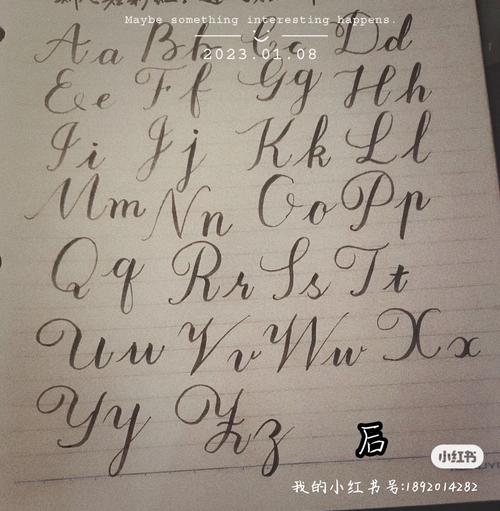 Maybe something interesting happens.
2023.01.08
Aa Bb Cc Dd
Ee Ff Gg Hh
Ii Jj Kk Ll
Mm Nn Oo Pp
Qq Rr Ss Tt
Uu Vv Ww Xx
Yy Zz
后
小红书
我的小红书号:1892014282